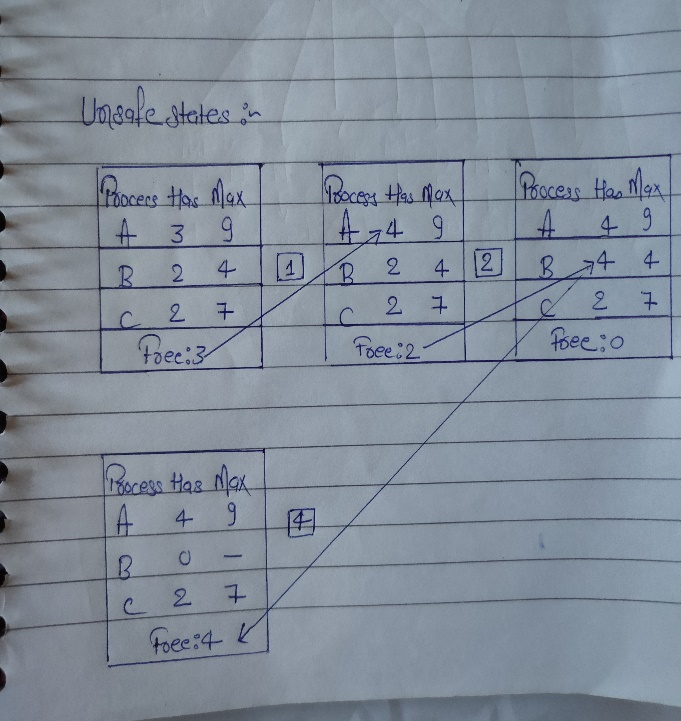 Unsafe states :~
Process Has Max
A 3 9
B 2 4
C 2 7
Free:3
1
Process Has Max
A 4 9
B 2 4
C 2 7
Free:2
2
Process Has Max
A 4 9
B 4 4
C 2 7
Free:0
Process Has Max
A 4 9
B 0 —
C 2 7
Free:4
4